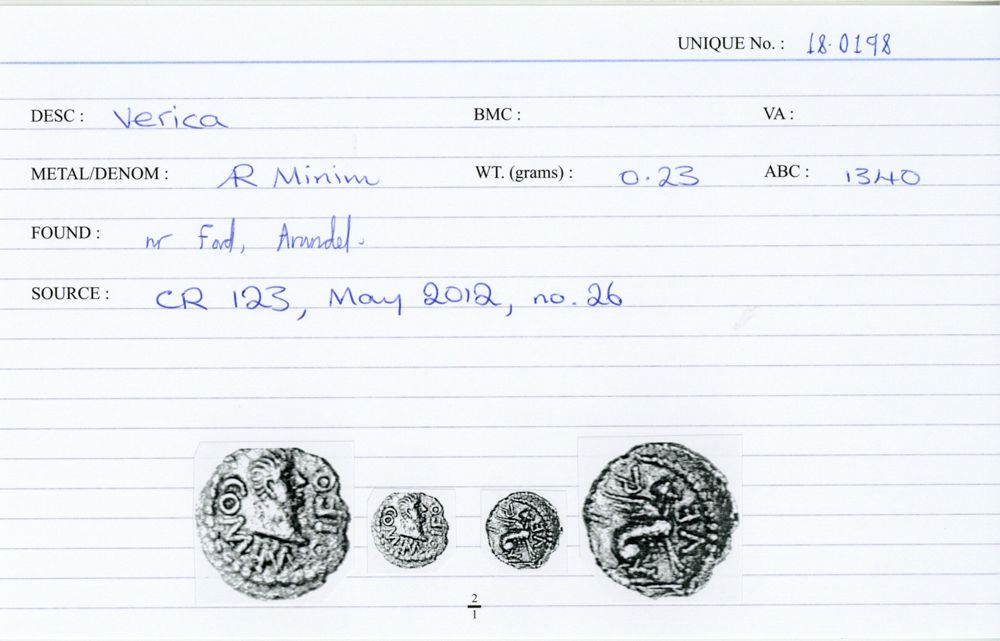 UNIQUE No. : 18.0198
DESC : Verica BMC : VA :
METAL/DENOM : AR Minim WT. (grams) : 0.23 ABC : 1340
FOUND : nr Ford, Arundel.
SOURCE : CR 123, May 2012, no. 26
2
1